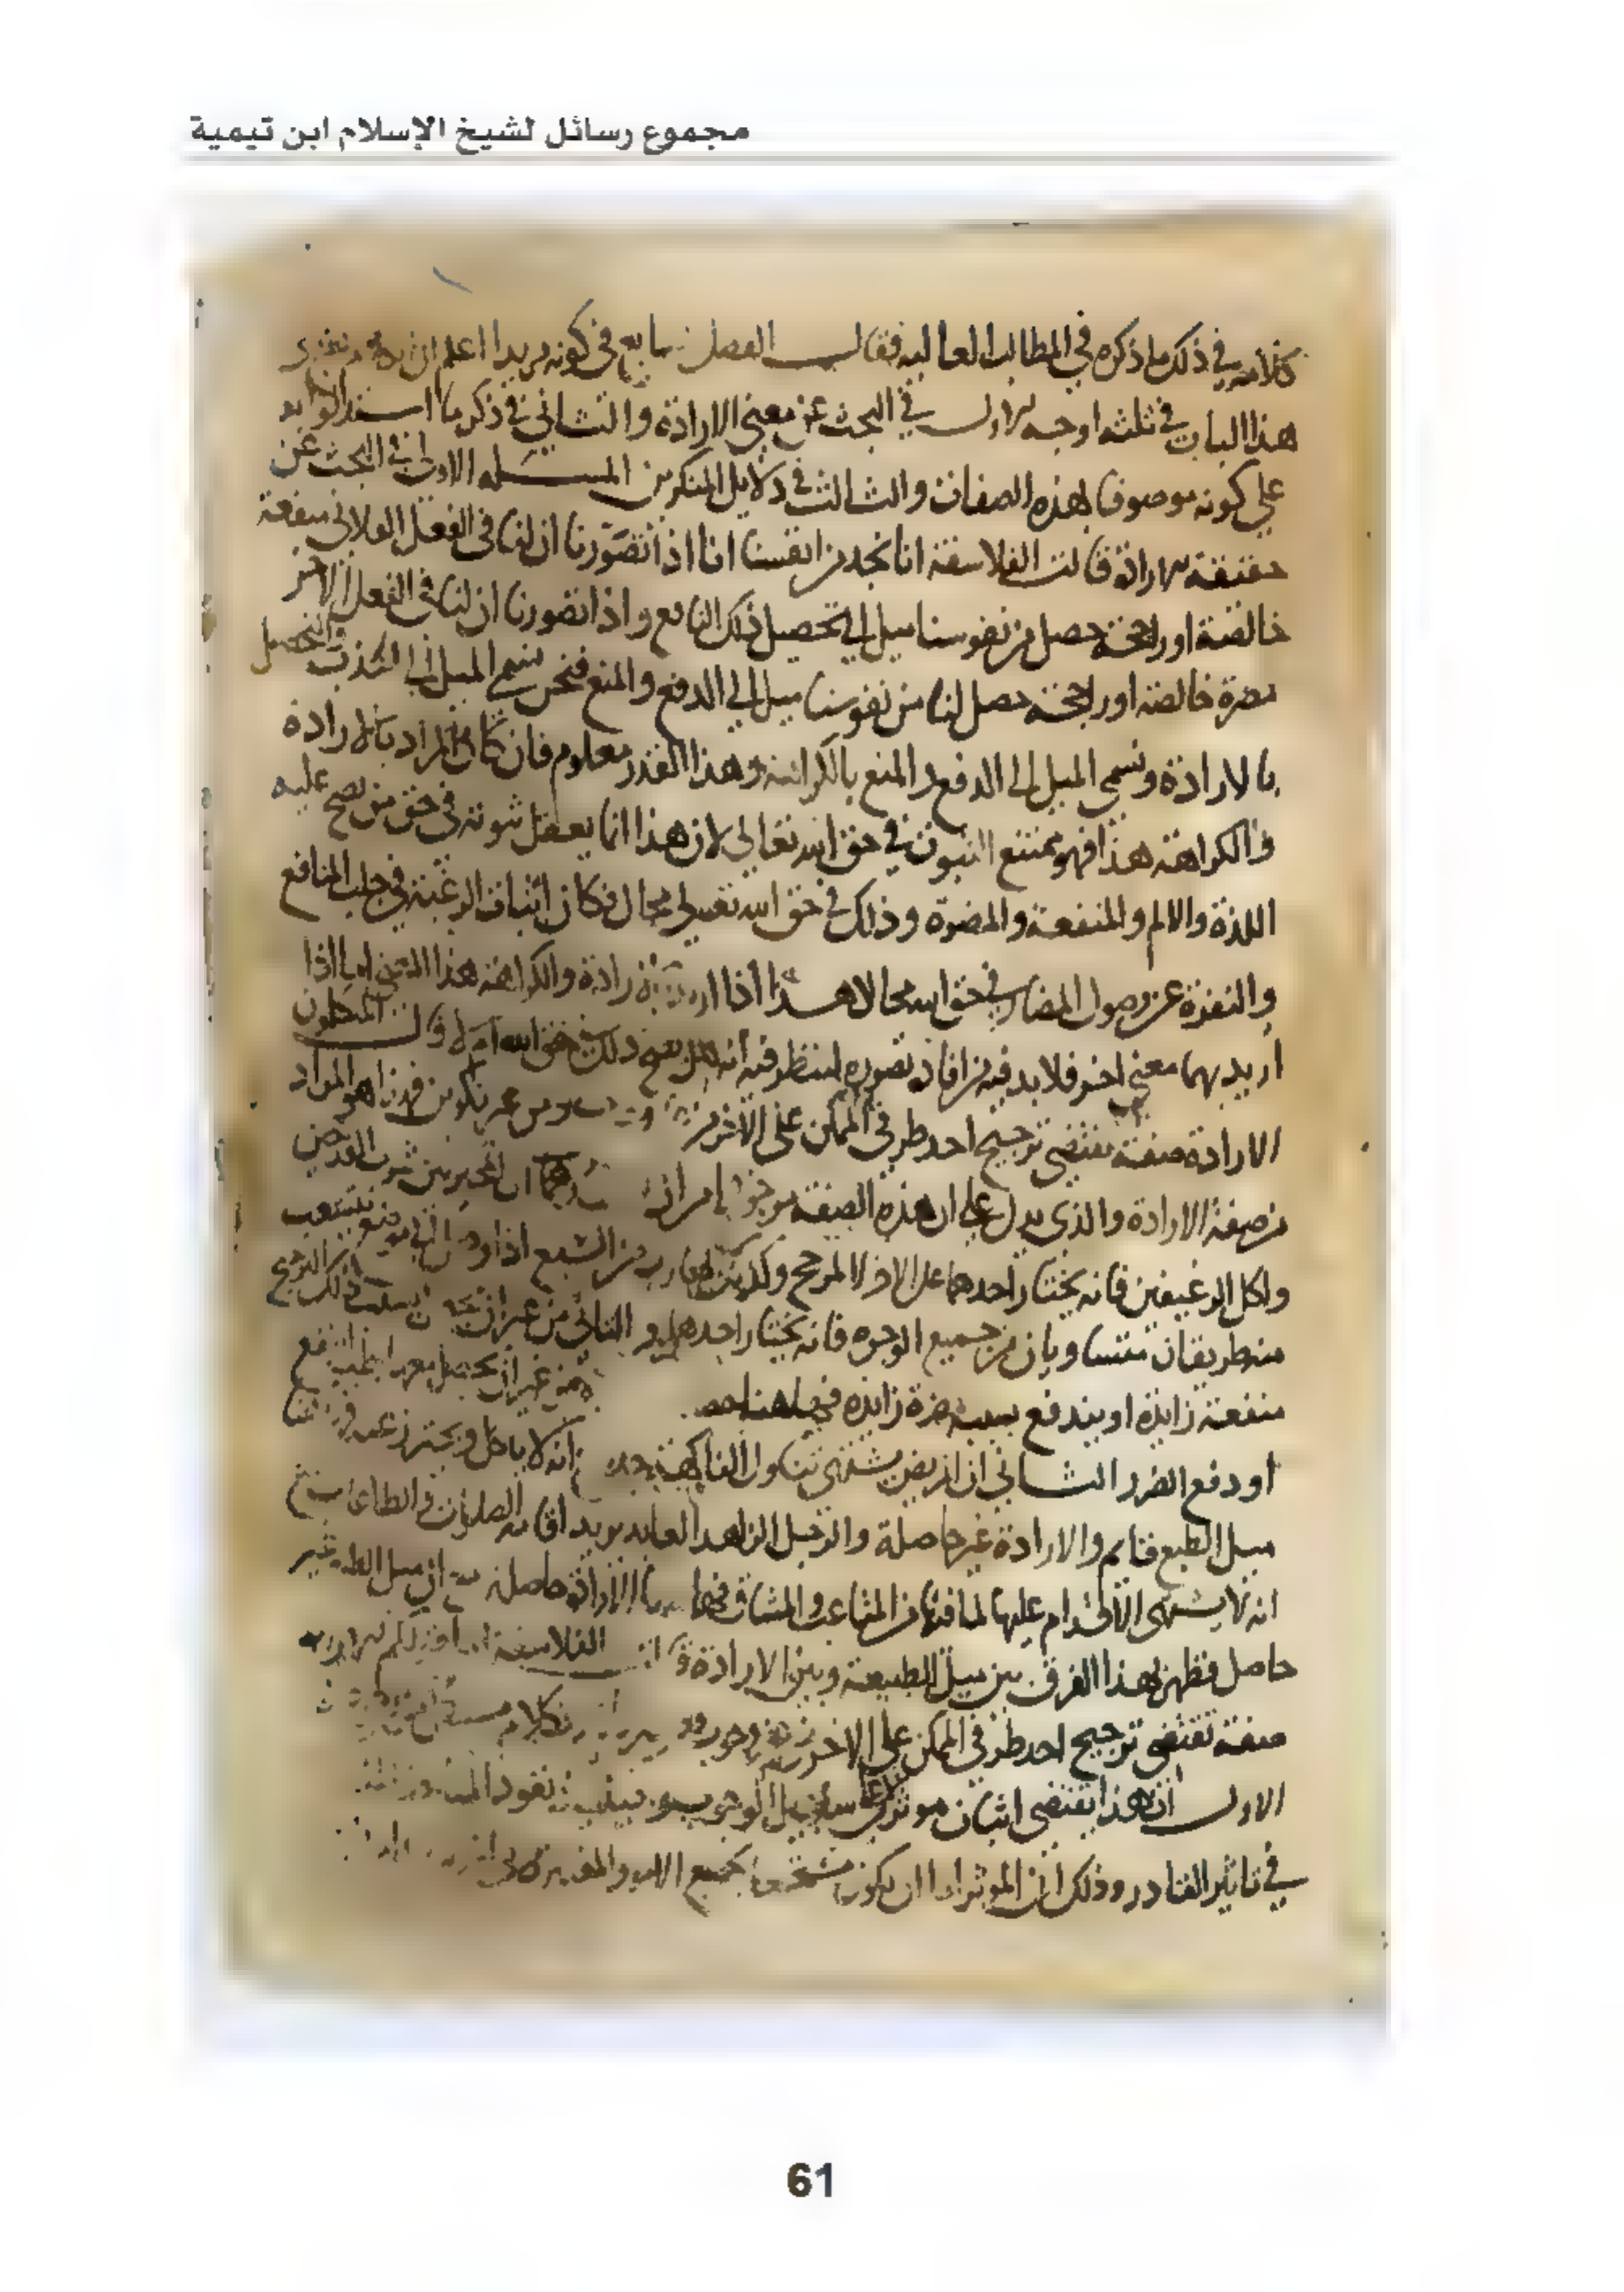 مجموع رسائل لشيخ الإسلام ابن تيمية
كلامه في ذلك ما ذكره في المطالب العاليه فقال الفصل السابع في كونه مريدا اعلم ان
هذا الباب في ثلثه اوجه الاول في البحث عن معنى الارادة والثاني في ذكر ما استدلوا به
على كونه موصوفا بهذه الصفات والثالث في دلايل المنكرين المسئله الاولى في البحث عن
حقيقة الارادة قالت الفلاسفة انا نجد من انفسنا انا اذا تصورنا ان لنا في الفعل الفلاني منفعة
خالصة اوراجحة حصل من نفوسنا ميل الى تحصيل ذلك النافع واذا تصورنا ان لنا في الفعل الاخر
مضرة خالصة اوراجحة حصل لنا من نفوسنا ميل الى الدفع والمنع فنحن نسمي الميل الى الجذب والتحصيل
بالارادة ونسمي الميل الى الدفع والمنع بالكراهة وهذا القدر معلوم فان كان المراد بالارادة
والكراهة هذا فهو ممتنع الثبوت في حق الله تعالى لان هذا انما يعقل ثبوته في حق من يصح عليه
اللذة والالم والمنفعة والمضرة وذلك في حق الله تعالى محال فكان اثبات الرغبة في جلب المنافع
والنفرة عن وصول المضار في حق الله محالا هذا اذا اريد بالارادة والكراهة هذا المعنى اما اذا
اريد بهما معنى اخر فلا بد فيه من افادة تصوره لننظر فيه انه هل يصح ذلك في حق الله ام لا قال المتكلمون
الارادة صفة تقتضي ترجيح احد طرفي الممكن على الاخر من غير تكوين فهذا هو المراد
من صفة الارادة والذي يدل على ان هذه الصفة موجودة امران احدهما ان المخير بين شرب القدحين
واكل الرغيفين فانه يختار احدهما على الاخر لا لمرجح وكذلك الهارب من السبع اذا وصل الى موضع يتشعب
منه طريقان متساويان من جميع الوجوه فانه يختار احدهما دون الثاني من غير ان بسبب ذلك الترجيح
منفعة زايدة او يندفع بسببه مضرة زايدة فها هنا من غير ان يحصل معها جلب النفع
او دفع الضرر الثاني ان المريض يشتهي تناول الفاكهة جدا مع انه لا ياكل ويحترز عنه فها هنا
ميل الطبع قايم والارادة غير حاصلة والرجل الزاهد العابد يريد اقامة الصلوات والطاعات مع
انه لا يشتهي الاقدام عليها لما فيها من المتاعب والمشاق فها هنا الارادة حاصلة مع ان ميل الطبع غير
حاصل فظهر بهذا الفرق بين ميل الطبيعة وبين الارادة قالت الفلاسفة اما قولكم الارادة
صفة تقتضي ترجيح احد طرفي الممكن على الاخر كلام
الاول ان هذا يقتضي اثبات موثر لا على سبيل الوجوب
في تاثير القادر وذلك لان الموثر اما ان يكون مستجمعا لجميع الامور المعتبرة في
61